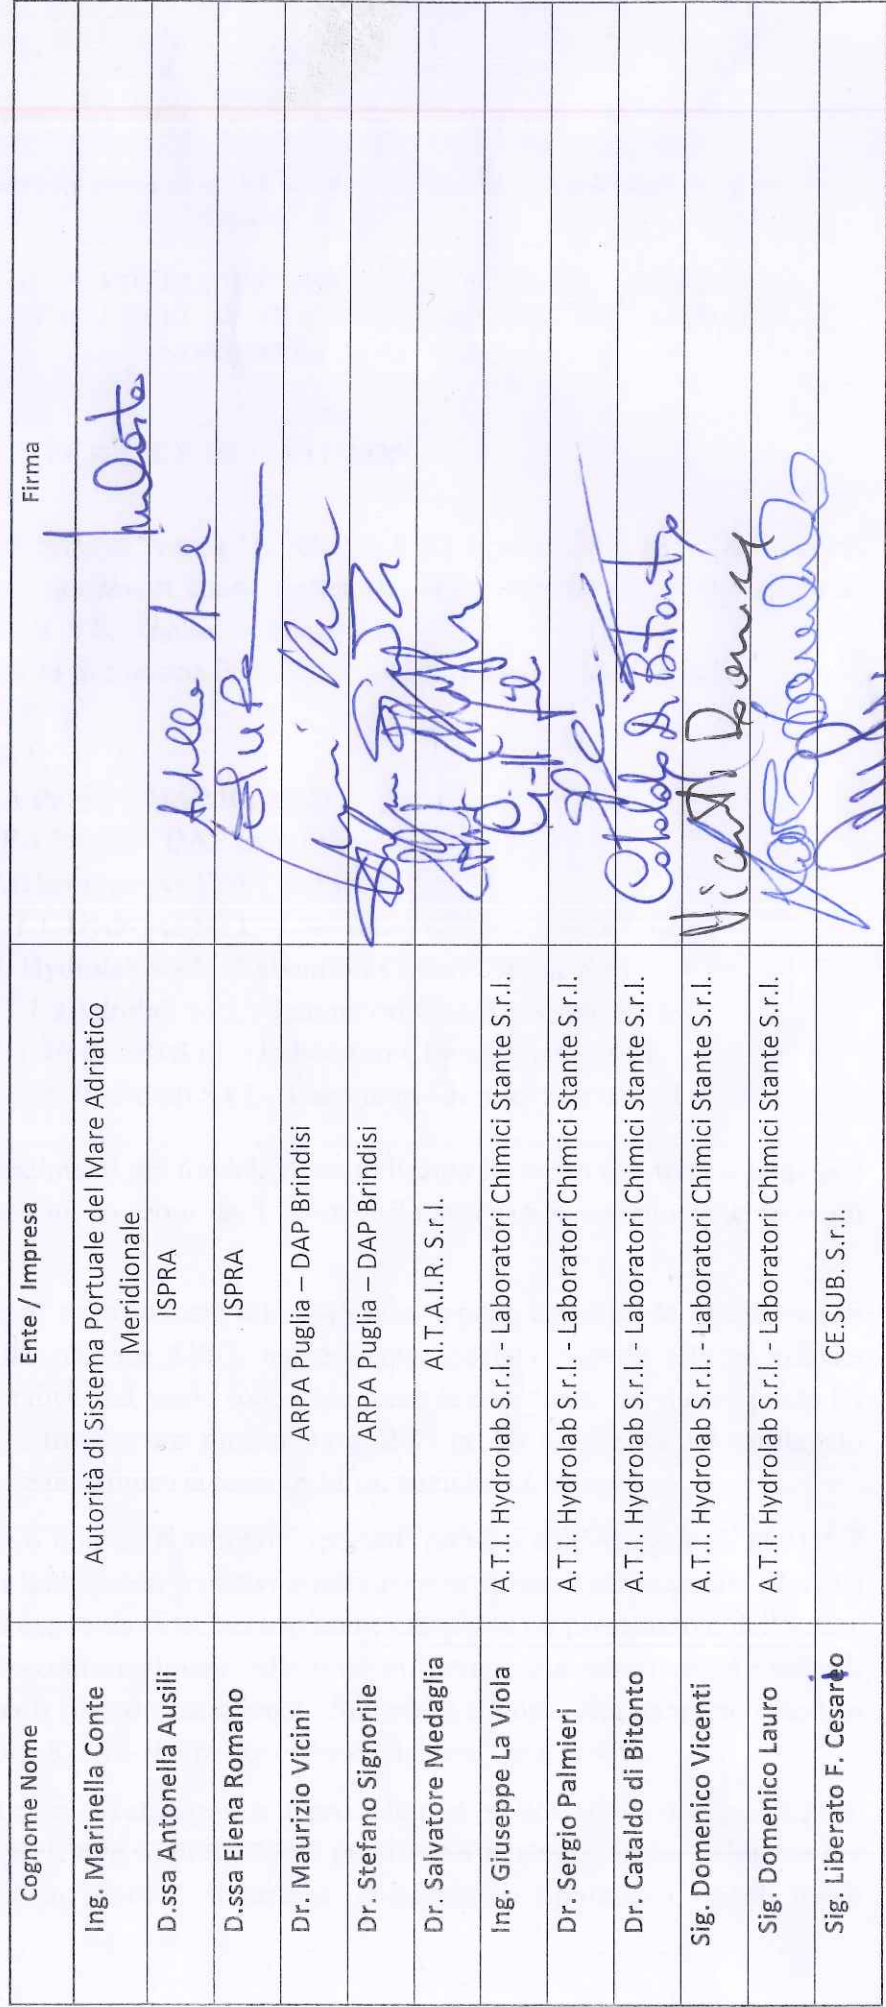 Cognome Nome Ente / Impresa Firma
Ing. Marinella Conte Autorità di Sistema Portuale del Mare Adriatico Meridionale
D.ssa Antonella Ausili ISPRA
D.ssa Elena Romano ISPRA
Dr. Maurizio Vicini ARPA Puglia – DAP Brindisi
Dr. Stefano Signorile ARPA Puglia – DAP Brindisi
Dr. Salvatore Medaglia AI.T.A.I.R. S.r.l.
Ing. Giuseppe La Viola A.T.I. Hydrolab S.r.l. - Laboratori Chimici Stante S.r.l.
Dr. Sergio Palmieri A.T.I. Hydrolab S.r.l. - Laboratori Chimici Stante S.r.l.
Dr. Cataldo di Bitonto A.T.I. Hydrolab S.r.l. - Laboratori Chimici Stante S.r.l. Cataldo di Bitonto
Sig. Domenico Vicenti A.T.I. Hydrolab S.r.l. - Laboratori Chimici Stante S.r.l.
Sig. Domenico Lauro A.T.I. Hydrolab S.r.l. - Laboratori Chimici Stante S.r.l.
Sig. Liberato F. Cesareo CE.SUB. S.r.l.